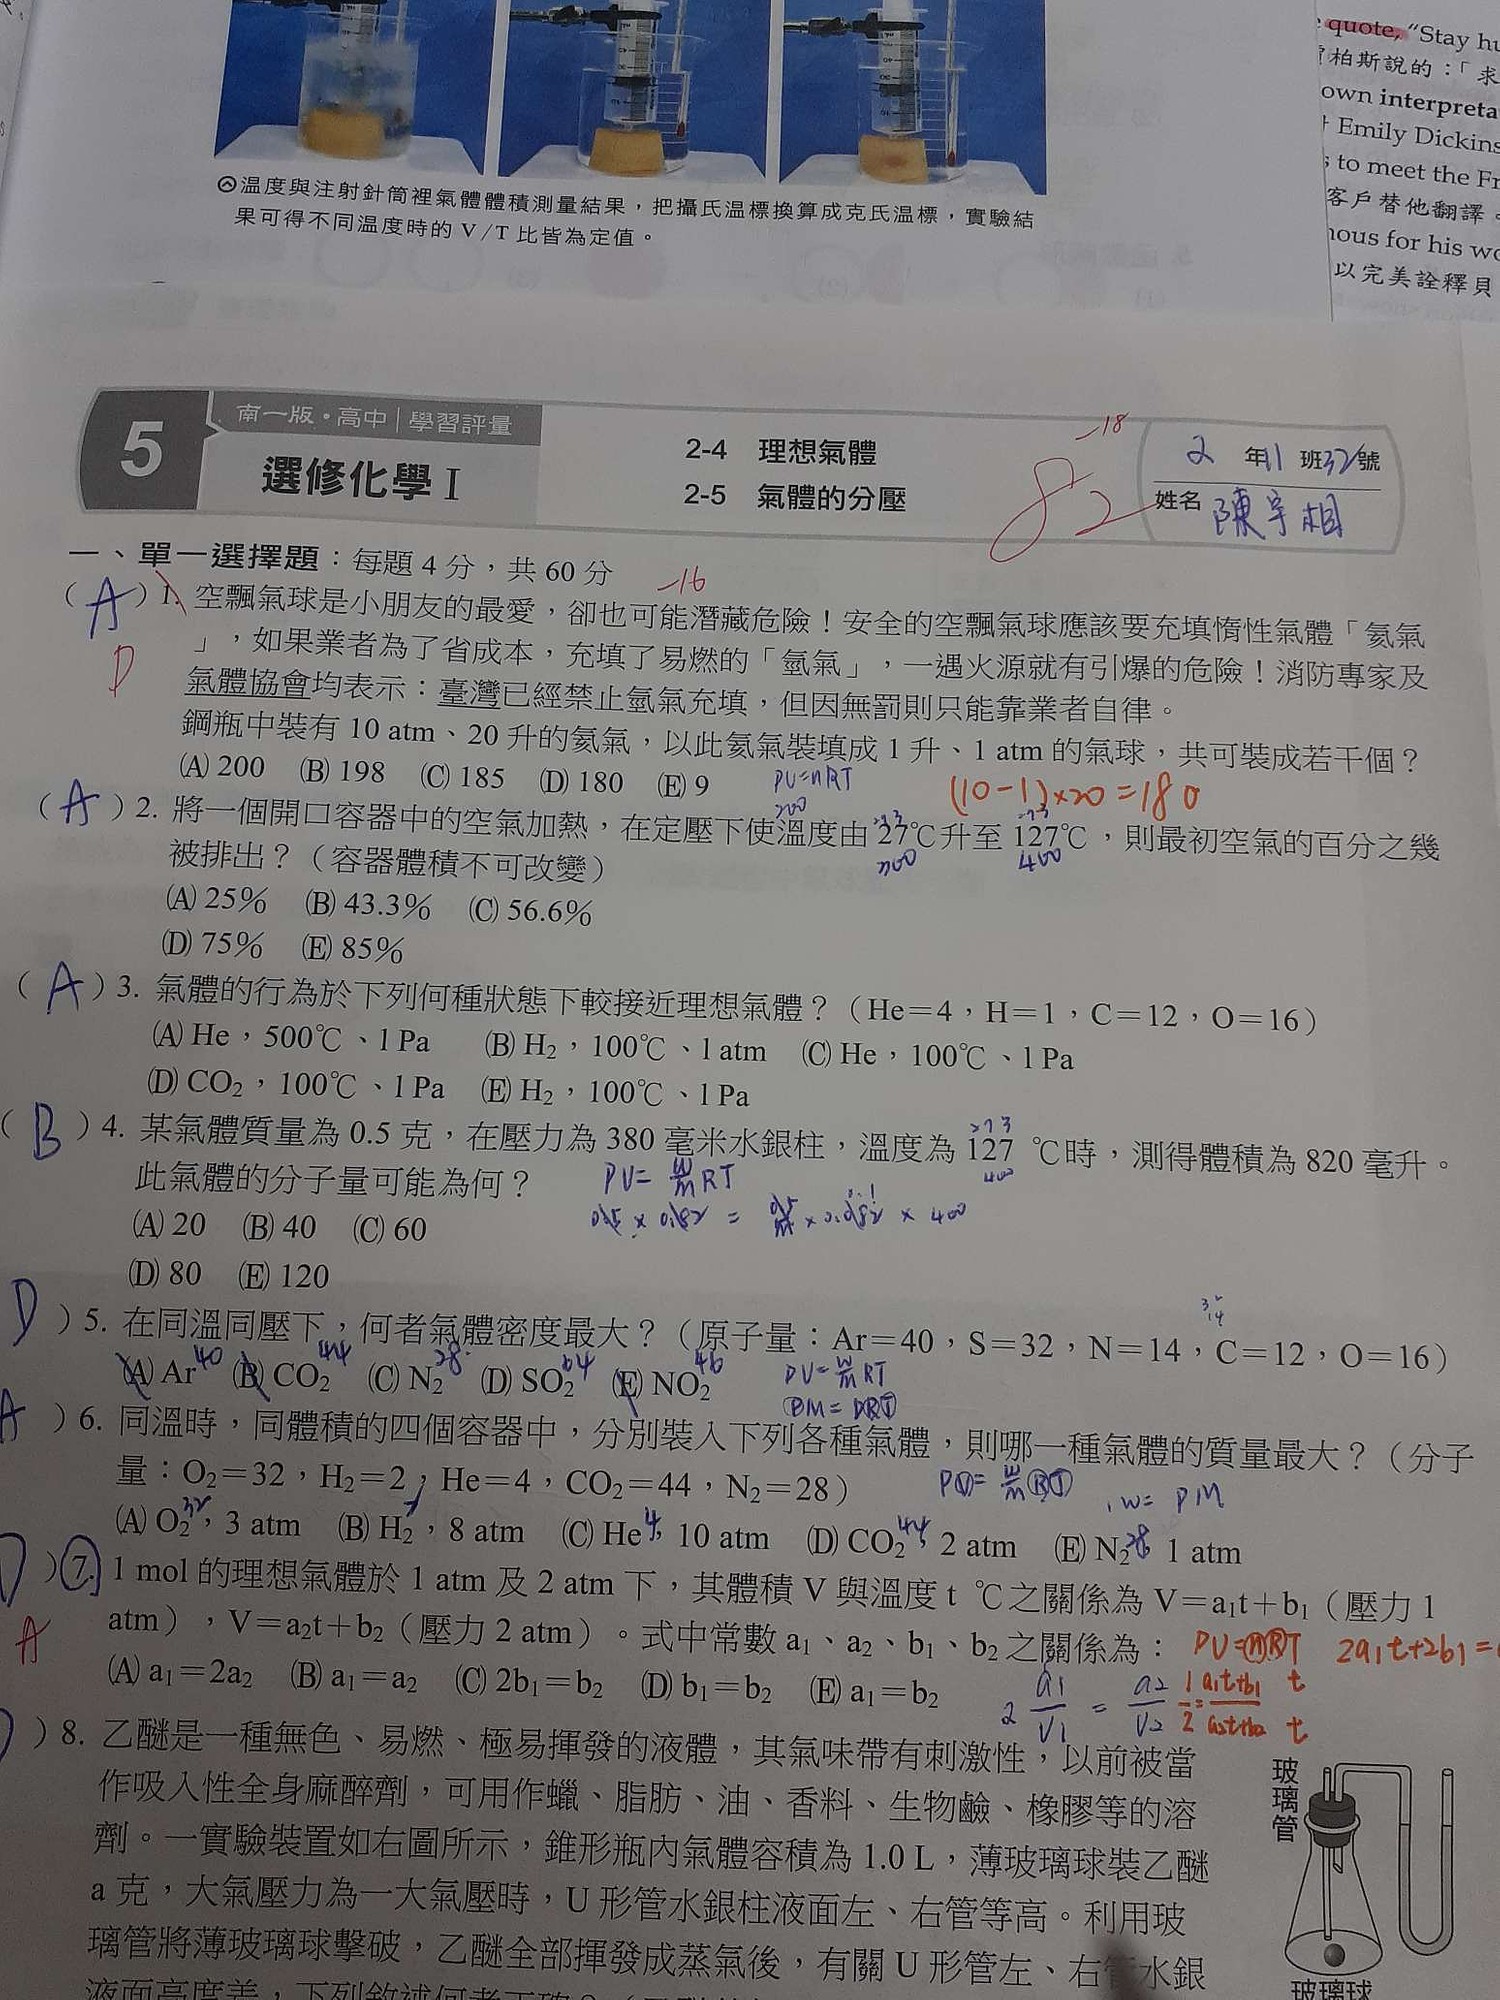 quote, “Stay hu
柏斯說的：「求
own interpreta
Emily Dickins
s to meet the Fr
客戶替他翻譯。
nous for his wo
以完美詮釋貝
溫度與注射針筒裡氣體體積測量結果，把攝氏溫標換算成克氏溫標，實驗結
果可得不同溫度時的 V/T 比皆為定值。
5
南一版・高中│學習評量
選修化學 I
2-4 理想氣體
2-5 氣體的分壓
-18
82
2 年 11 班 32 號
姓名 陳宇相
一、單一選擇題：每題 4 分，共 60 分
-16
( A ) 1. 空飄氣球是小朋友的最愛，卻也可能潛藏危險！安全的空飄氣球應該要充填惰性氣體「氦氣
D
」，如果業者為了省成本，充填了易燃的「氫氣」，一遇火源就有引爆的危險！消防專家及
氣體協會均表示：臺灣已經禁止氫氣充填，但因無罰則只能靠業者自律。
鋼瓶中裝有 10 atm、20 升的氦氣，以此氦氣裝填成 1 升、1 atm 的氣球，共可裝成若干個？
(A) 200 (B) 198 (C) 185 (D) 180 (E) 9
PV=nRT
200
(10-1)×20=180
( A ) 2. 將一個開口容器中的空氣加熱，在定壓下使溫度由 27℃升至 127℃，則最初空氣的百分之幾
273
273
300
400
被排出？（容器體積不可改變）
(A) 25% (B) 43.3% (C) 56.6%
(D) 75% (E) 85%
( A ) 3. 氣體的行為於下列何種狀態下較接近理想氣體？（He＝4，H＝1，C＝12，O＝16）
(A) He，500℃、1 Pa (B) H₂，100℃、1 atm (C) He，100℃、1 Pa
(D) CO₂，100℃、1 Pa (E) H₂，100℃、1 Pa
( B ) 4. 某氣體質量為 0.5 克，在壓力為 380 毫米水銀柱，溫度為 127 ℃時，測得體積為 820 毫升。
273
400
此氣體的分子量可能為何？
PV= W/M RT
0.5 × 0.82 = 0.5/M × 0.082 × 400
0.1
(A) 20 (B) 40 (C) 60
(D) 80 (E) 120
D ) 5. 在同溫同壓下，何者氣體密度最大？（原子量：Ar＝40，S＝32，N＝14，C＝12，O＝16）
32
14
(A) Ar 40 (B) CO₂ 44 (C) N₂ 28 (D) SO₂ 64 (E) NO₂ 46
PV= W/M RT
PM= DRT
A ) 6. 同溫時，同體積的四個容器中，分別裝入下列各種氣體，則哪一種氣體的質量最大？（分子
量：O₂＝32，H₂＝2，He＝4，CO₂＝44，N₂＝28）
PV= W/M RT
W= PM
(A) O₂ 32，3 atm (B) H₂ 2，8 atm (C) He 4，10 atm (D) CO₂ 44，2 atm (E) N₂ 28 1 atm
D ) 7. 1 mol 的理想氣體於 1 atm 及 2 atm 下，其體積 V 與溫度 t ℃之關係為 V＝a₁t＋b₁（壓力 1
A
atm），V＝a₂t＋b₂（壓力 2 atm）。式中常數 a₁、a₂、b₁、b₂ 之關係為：
PV=nRT 2a₁t+2b₁=
(A) a₁＝2a₂ (B) a₁＝a₂ (C) 2b₁＝b₂ (D) b₁＝b₂ (E) a₁＝b₂
2 a₁/V₁ = a₂/V₂
1/2 = a₁t+b₁/a₂t+b₂ t/t
) 8. 乙醚是一種無色、易燃、極易揮發的液體，其氣味帶有刺激性，以前被當
作吸入性全身麻醉劑，可用作蠟、脂肪、油、香料、生物鹼、橡膠等的溶
劑。一實驗裝置如右圖所示，錐形瓶內氣體容積為 1.0 L，薄玻璃球裝乙醚
a 克，大氣壓力為一大氣壓時，U 形管水銀柱液面左、右管等高。利用玻
璃管將薄玻璃球擊破，乙醚全部揮發成蒸氣後，有關 U 形管左、右管水銀
液面高度差，下列敘述何者正確？
玻璃管
玻璃球